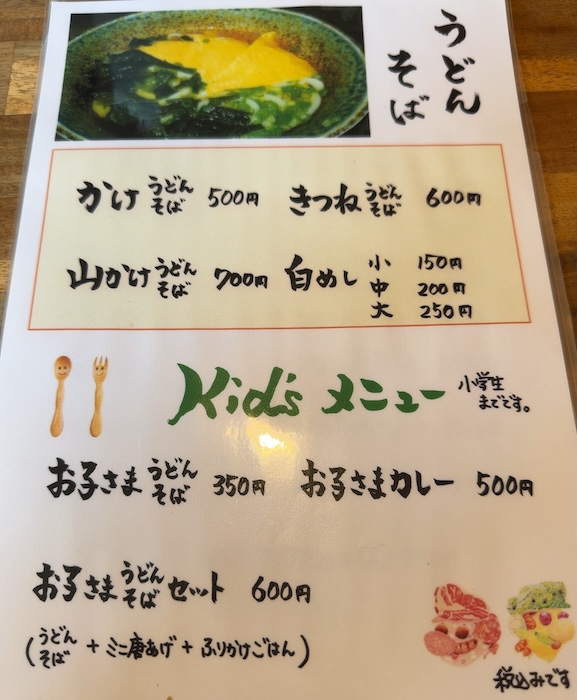 うどん
そば
かけ うどん そば 500円
きつね うどん そば 600円
山かけ うどん そば 700円
白めし 小 150円
中 200円
大 250円
Kid's メニュー 小学生
までです。
お子さま うどん そば 350円
お子さまカレー 500円
お子さま うどん そば セット 600円
(うどん そば + ミニ唐あげ + ふりかけごはん)
税込みです